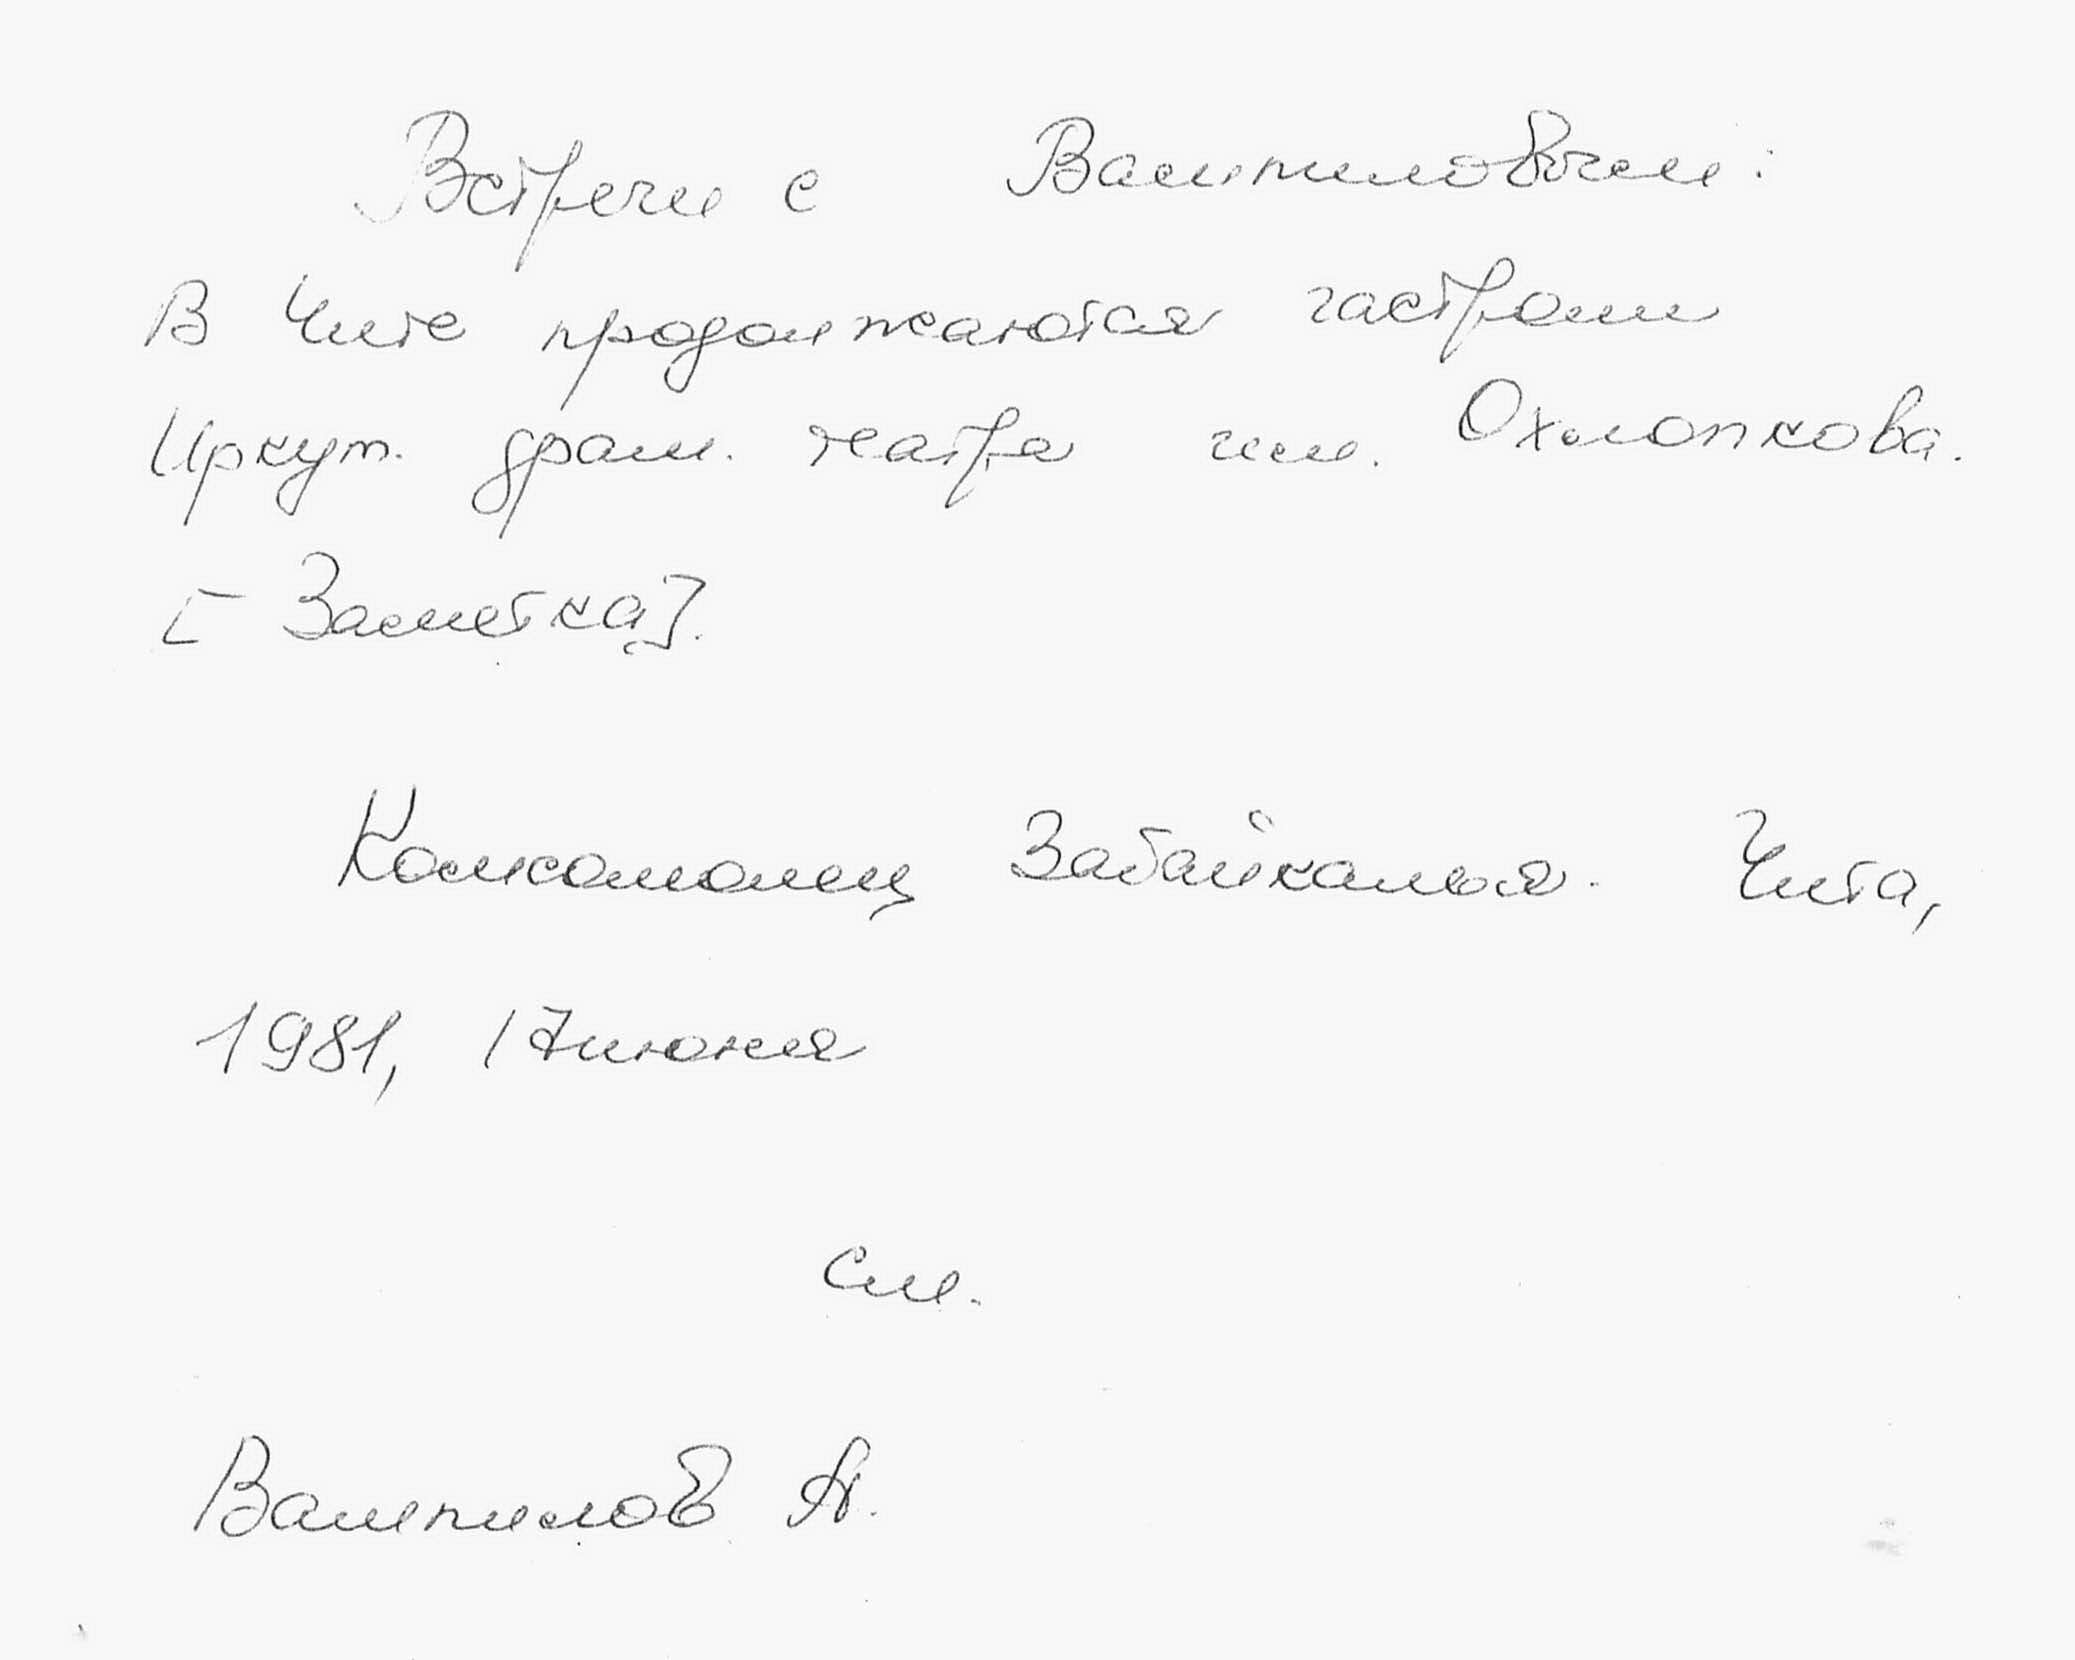 Встречи с Вампиловым:
В Чите продолжаются гастроли
Иркут. драм. театра им. Охлопкова.
[Заметка].
Комсомолец Забайкалья. Чита,
1981, 17 июня
см.
Вампилов А.